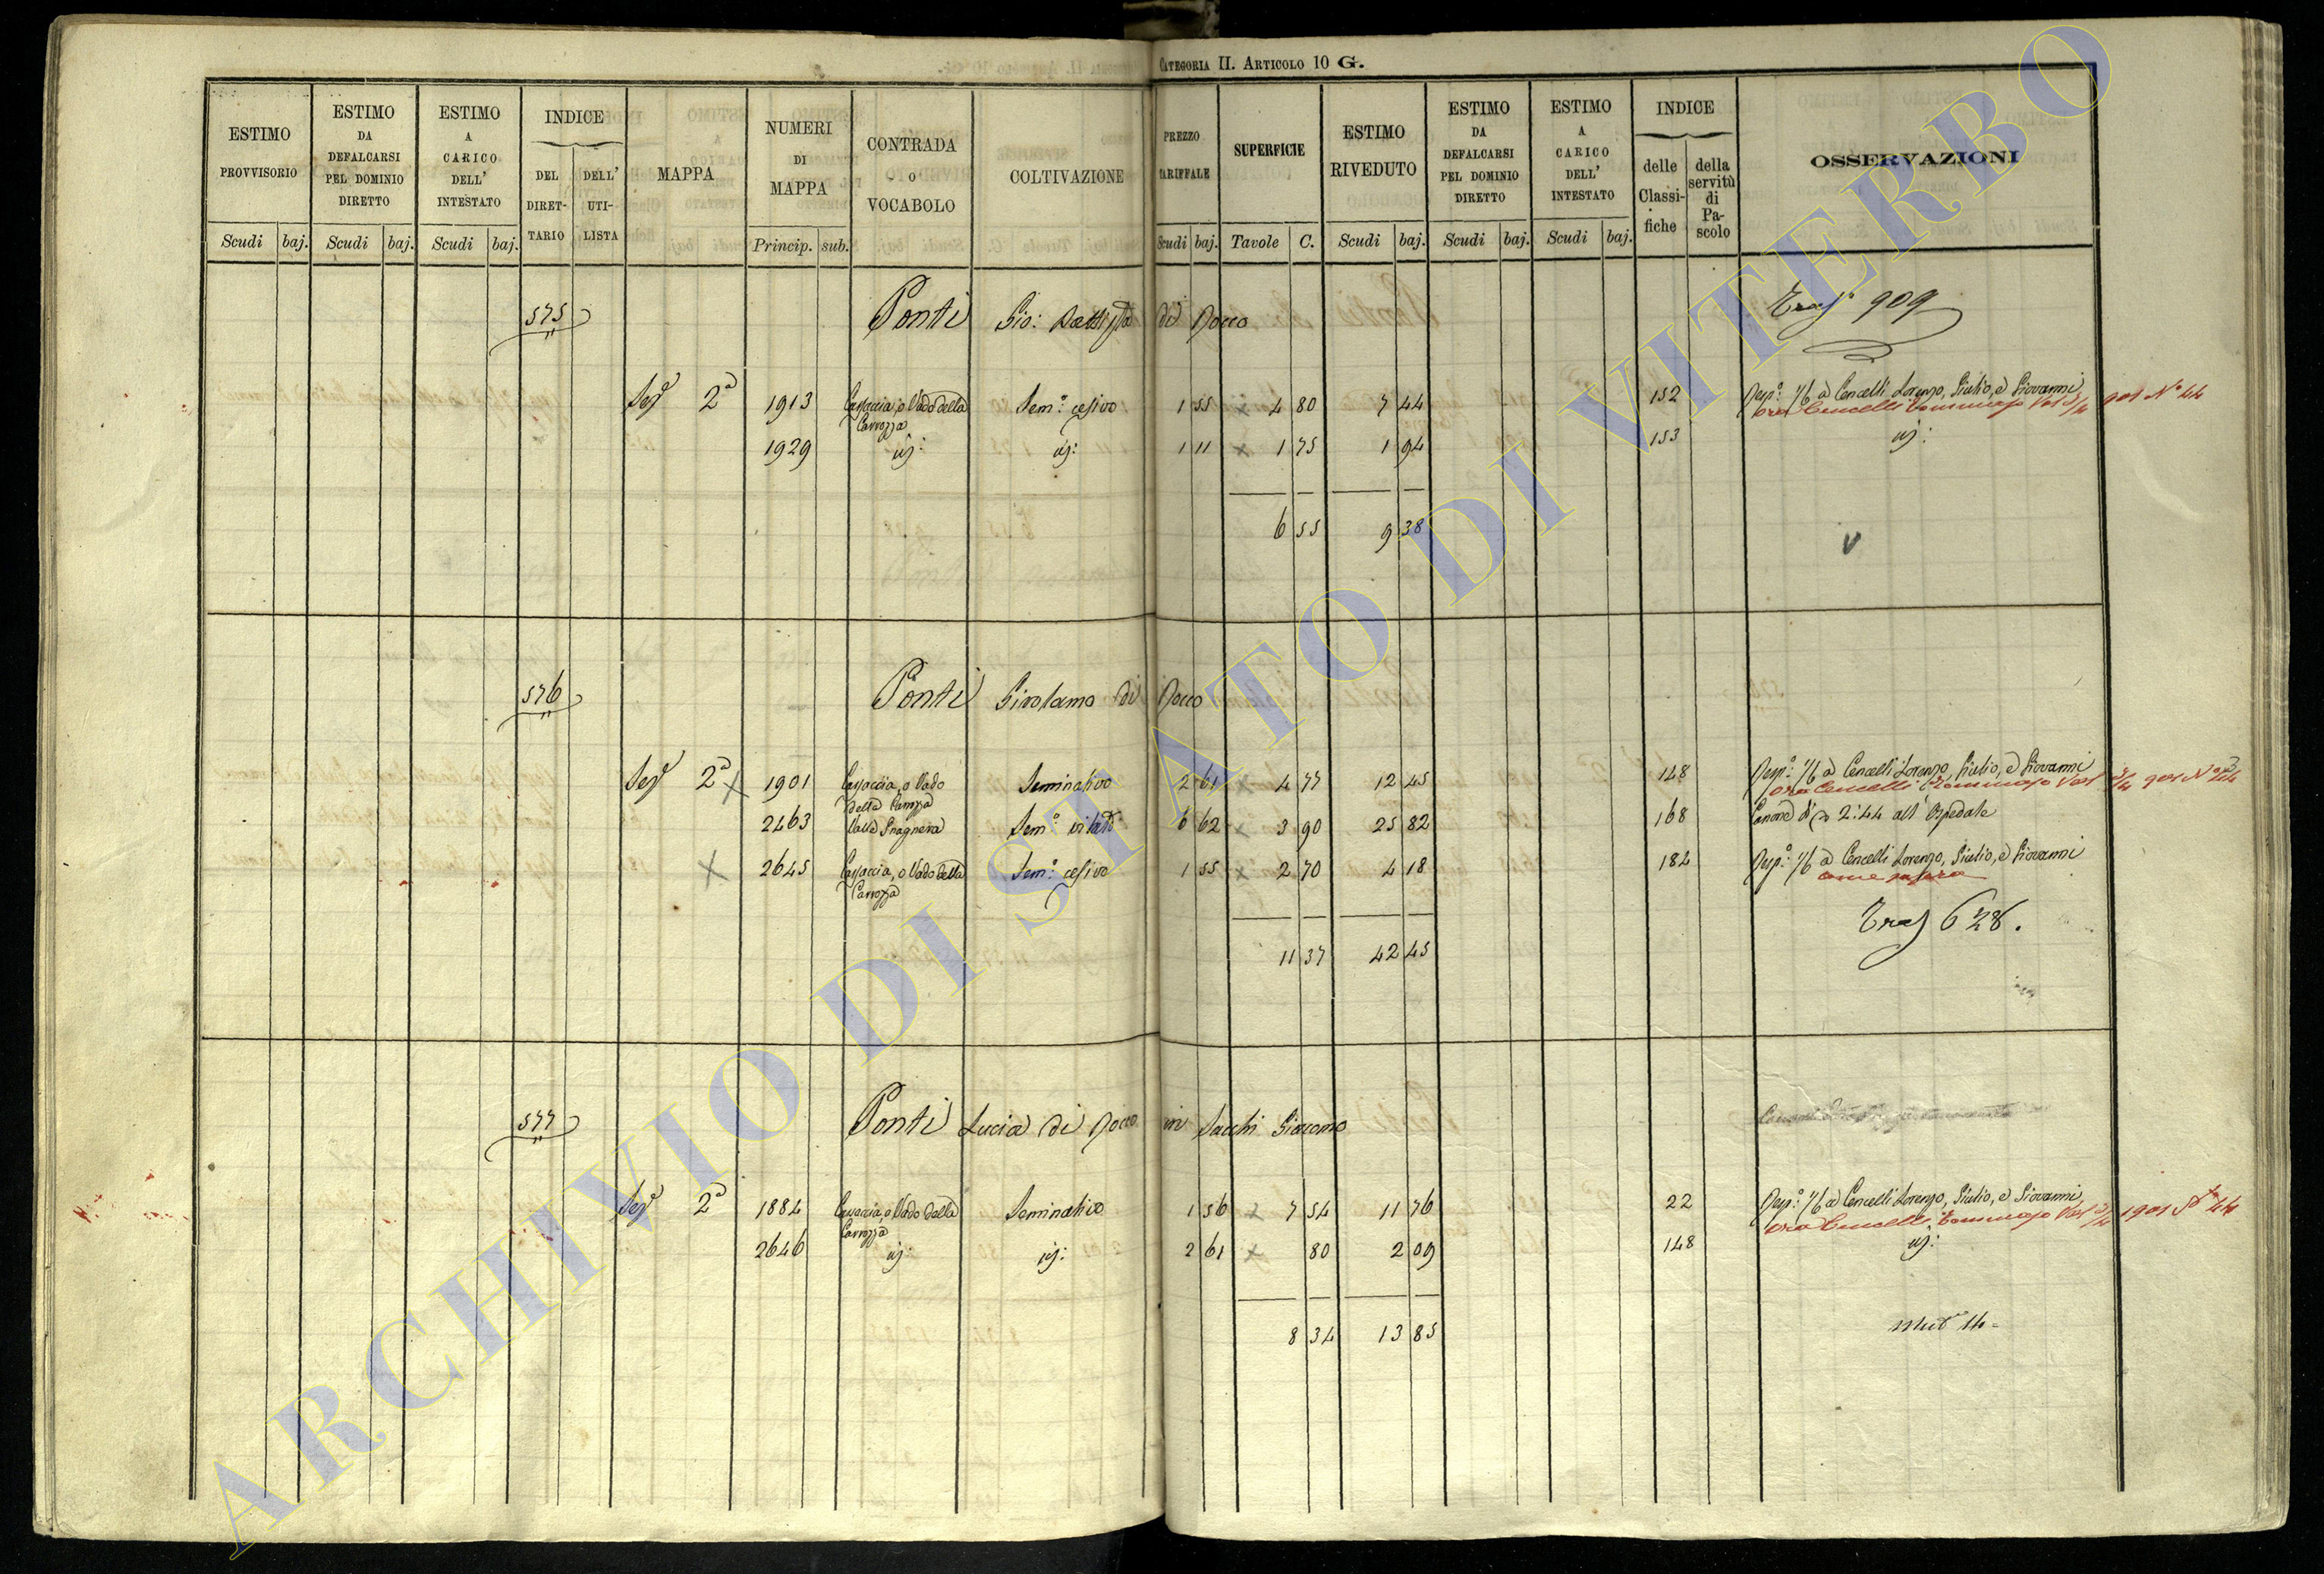 CATEGORIA II. ARTICOLO 10 G.
ESTIMO PROVVISORIO
ESTIMO DA DEFALCARSI PEL DOMINIO DIRETTO
ESTIMO A CARICO DELL' INTESTATO
INDICE
DEL DIRETTARIO
DELL' UTILISTA
MAPPA
NUMERI DI MAPPA
CONTRADA O VOCABOLO
COLTIVAZIONE
PREZZO TARIFFALE
SUPERFICIE
ESTIMO RIVEDUTO
ESTIMO DA DEFALCARSI PEL DOMINIO DIRETTO
ESTIMO A CARICO DELL' INTESTATO
INDICE
delle Classifiche
della servitù di Pascolo
OSSERVAZIONI
Scudi baj. Scudi baj. Scudi baj. Princip. sub. Scudi baj. Tavole C. Scudi baj. Scudi baj. Scudi baj.
575 Ponti Gio: Battista di Rocco Tras° 909
Sez 2a 1913 Casaccia, o Vado della Carrozza Sem.o cesivo 1 55 x 4 80 7 44 152 Risp.o 1/6 a Cencelli Lorenzo, Giulio, e Giovanni
ora Cencelli Tommaso 901 N° 44
1929 id: id: 1 11 x 1 75 1 94 153 id:
6 55 9 38
V
576 Ponti Girolamo di Rocco
Sez 2a x 1901 Casaccia, o Vado della Seminativo 2 61 x 4 77 12 45 148 Risp.o 1/6 a Cencelli Lorenzo, Giulio, e Giovanni
ora Cencelli Tommaso 901 N° 44
2463 Valle Sem.o vitato 6 62 x 3 90 25 82 168 Canone di 2:44 all' Ospedale
x 2645 Casaccia, o Vado della Carrozza Sem.o cesivo 1 55 x 2 70 4 18 184 Risp.o 1/6 a Cencelli Lorenzo, Giulio, e Giovanni
come sopra
11 37 42 45
Tras 628.
577 Ponti Lucia di Rocco in Sacchi Giacomo
Sez 2a 1884 Casaccia, o Vado della Carrozza Seminativo 1 56 x 7 54 11 76 22 Risp.o 1/6 a Cencelli Lorenzo, Giulio, e Giovanni
ora Cencelli Tommaso 1901 N° 44
2646 id: id: 2 61 x 80 2 09 148 id:
8 34 13 85
ARCHIVIO DI STATO DI VITERBO